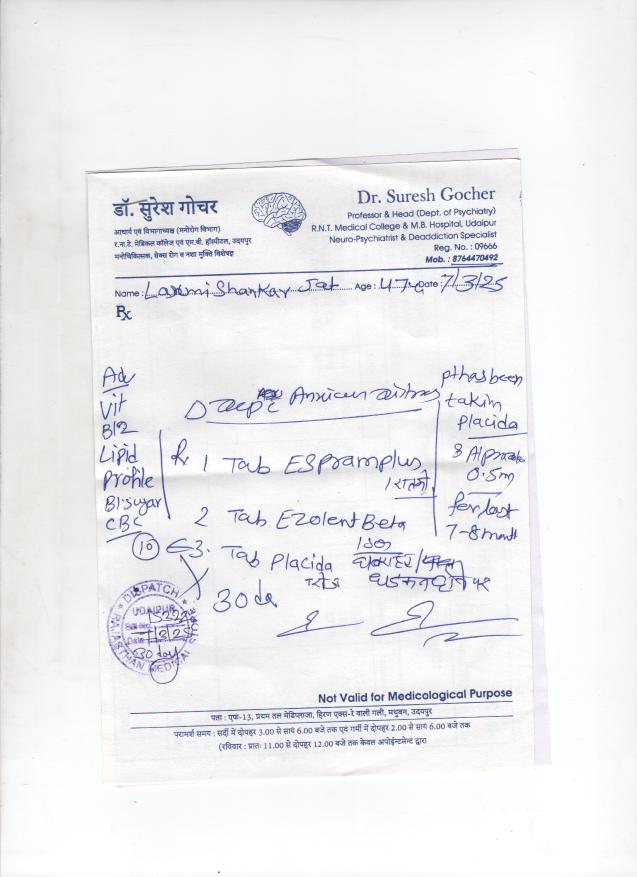 डॉ. सुरेश गोचर
आचार्य एवं विभागाध्यक्ष (मनोरोग विभाग)
र.ना.टे. मेडिकल कॉलेज एवं एम.बी. हॉस्पीटल, उदयपुर
मनोचिकित्सक, सेक्स रोग व नशा मुक्ति विशेषज्ञ
Dr. Suresh Gocher
Professor & Head (Dept. of Psychiatry)
R.N.T. Medical College & M.B. Hospital, Udaipur
Neuro-Psychiatrist & Deaddiction Specialist
Reg. No. : 09666
Mob. : 8764470492
Name : Laxmi Shankar Jat Age : 47y Date : 7/3/25
Rx
Adv
Vit
B12
Lipid
Profile
Bl. sugar
CBC
pt has been
takim
Placida
0.5m
for last
7-8 month
Rx 1 Tab ESpramplus
1 रातको
2 Tab Ezolent Beta
10 3. Tab Placida
30 da
DISPATCH
UDAIPUR
30 day
RAJASTHAN MEDICAL
Not Valid for Medicological Purpose
पता : एफ-13, प्रथम तल मेडिप्लाजा, हिरण एक्स-रे वाली गली, मधुबन, उदयपुर
परामर्श समय : सर्दी में दोपहर 3.00 से सायं 6.00 बजे तक एवं गर्मी में दोपहर 2.00 से सायं 6.00 बजे तक
(रविवार : प्रातः 11.00 से दोपहर 12.00 बजे तक केवल अपोईन्टमेन्ट द्वारा